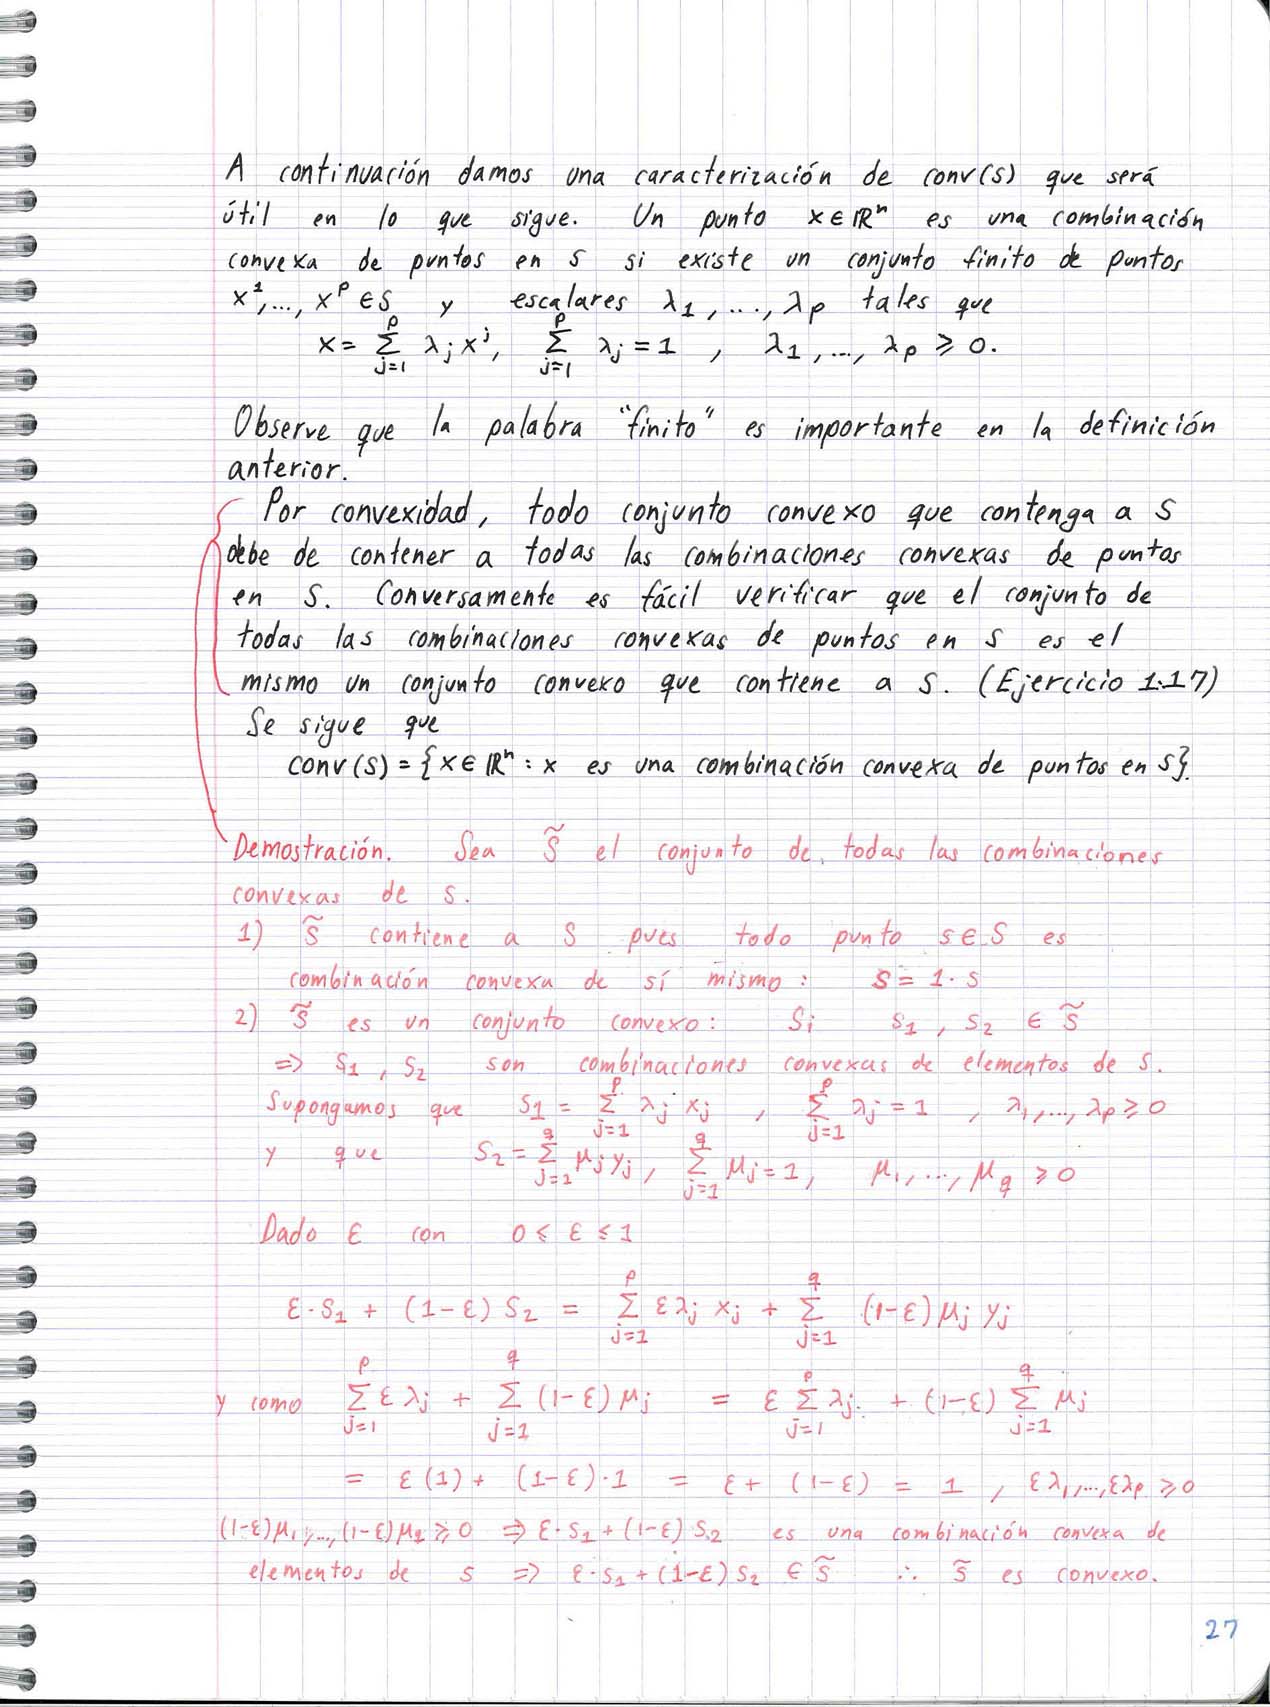 A continuación damos una caracterización de conv(S) que será
útil en lo que sigue. Un punto x ∈ ℝⁿ es una combinación
convexa de puntos en S si existe un conjunto finito de puntos
x¹,..., xᵖ ∈ S y escalares λ₁,..., λₚ tales que
x = Σ_{j=1}^{p} λⱼ xʲ, Σ_{j=1}^{p} λⱼ = 1 , λ₁,..., λₚ ⩾ 0.
Observe que la palabra "finito" es importante en la definición
anterior.
Por convexidad, todo conjunto convexo que contenga a S
debe de contener a todas las combinaciones convexas de puntos
en S. Conversamente es fácil verificar que el conjunto de
todas las combinaciones convexas de puntos en S es el
mismo un conjunto convexo que contiene a S. (Ejercicio 1.17)
Se sigue que
conv(S) = {x ∈ ℝⁿ : x es una combinación convexa de puntos en S}.
Demostración. Sea S̃ el conjunto de todas las combinaciones
convexas de S.
1) S̃ contiene a S pues todo punto s ∈ S es
combinación convexa de sí mismo: s = 1 · s
2) S̃ es un conjunto convexo: Si s₁ , s₂ ∈ S̃
⇒ s₁ , s₂ son combinaciones convexas de elementos de S.
Supongamos que s₁ = Σ_{j=1}^{p} λⱼ xⱼ , Σ_{j=1}^{p} λⱼ = 1 , λ₁,..., λₚ ⩾ 0
y que s₂ = Σ_{j=1}^{q} μⱼ yⱼ , Σ_{j=1}^{q} μⱼ = 1, μ₁,..., μ_q ⩾ 0
Dado ε con 0 ≤ ε ≤ 1
ε · s₁ + (1-ε) s₂ = Σ_{j=1}^{p} ε λⱼ xⱼ + Σ_{j=1}^{q} (1-ε) μⱼ yⱼ
y como Σ_{j=1}^{p} ε λⱼ + Σ_{j=1}^{q} (1-ε) μⱼ = ε Σ_{j=1}^{p} λⱼ + (1-ε) Σ_{j=1}^{q} μⱼ
= ε(1) + (1-ε) · 1 = ε + (1-ε) = 1 , ελ₁,..., ελₚ ⩾ 0
(1-ε)μ₁,..., (1-ε)μ_q ⩾ 0 ⇒ ε · s₁ + (1-ε) s₂ es una combinación convexa de
elementos de S ⇒ ε · s₁ + (1-ε) s₂ ∈ S̃ ∴ S̃ es convexo.
27